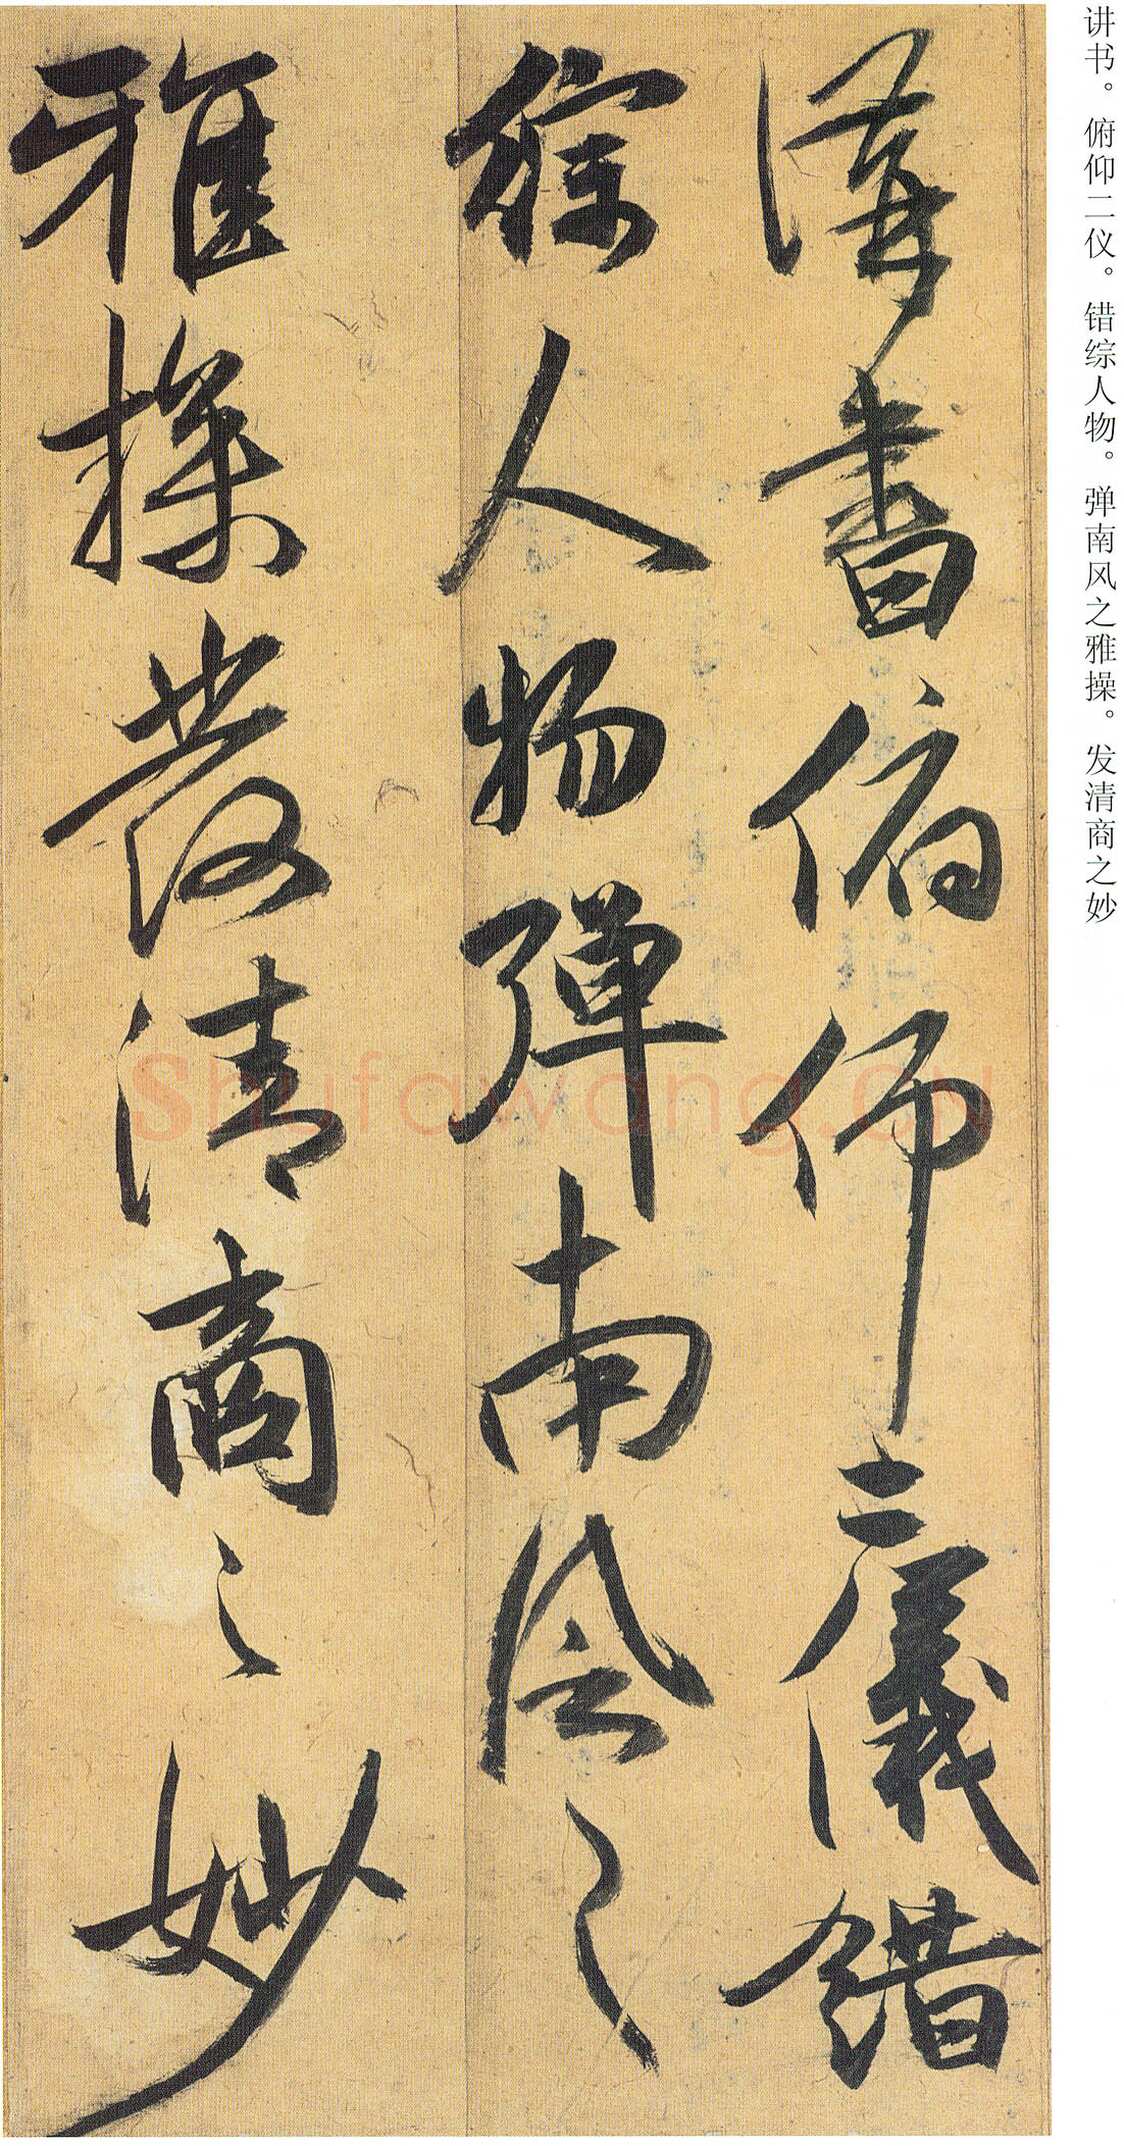 讲书。俯仰二仪。错综人物。弹南风之雅操。发清商之妙
講書俯仰二儀錯
綜人物彈南風之
雅操發清商之妙
Shufawang.CN